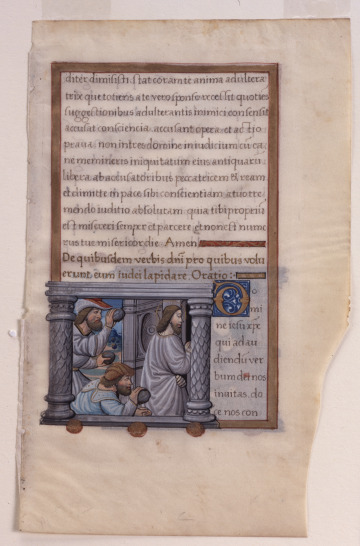 diter dimisisti. stat coram te anima adultera
que totiens a te vero sponso recessit quoties
suggestionibus adulterantis inimici consensit
accusat consciencia, accusant opera et actio
praua. non intres domine in iudicium cu ea.
ne memineris iniquitatum eius antiquaru.
libera ab absolutoribus peccatricem & ream
et dimitte in pace sibi conscientiam a tuo tre
mendo iuditio absolutam. quia tibi propriu
est misereri semper et parcere et non est nume
rus tue misericordie. Amen.
De quibusdem verbis dni pro quibus volu
erunt eum iudei lapidare. Oratio:
Do
mi
ne iesu xpe
qui ad au
diendu ver
bum dei nos
inuitas. do
ce nos con